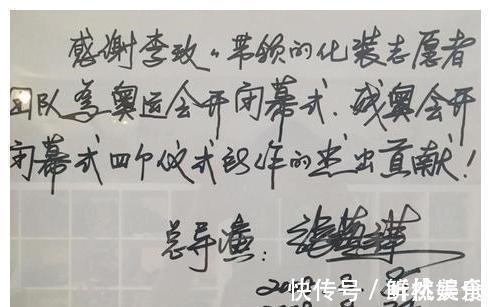 感谢李玫·带领的化装志愿者
团队为奥运会开闭幕式、残奥会开
闭幕式四个仪式所作的杰出贡献!
总导演:张艺谋
快传号/